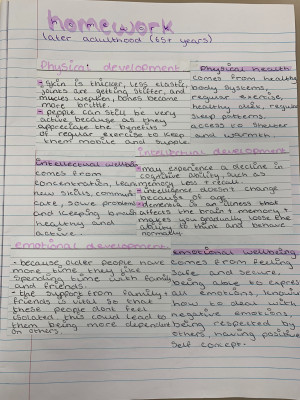 homework
later adulthood (65+ years)
Physical development
- skin is thicker, less elastic,
joints are getting stiffer, and
muscles weaken, bones become
more brittle.
- people can still be very
active because as they
appreciate the benefits
of regular exercise to keep
them mobile and supple
Physical health
comes from healthy
body systems,
regular exercise,
healthy diet, regular
sleep patterns,
access to shelter
and warmth
Intellectual wellbeing
comes from
concentration, learning
new skills, communi
cate, solve problems
and keeping brain
healthy and
active
Intellectual development
- may experience a decline in
cognitive ability, such as
memory loss + recall
- intelligence doesn't change
because of age
- dementia is an illness that
affects the brain + memory +
makes you gradually loose the
ability to think and behave
normally
emotional development
- because older people have
more time, they like
spending time with family
and friends.
- the support from family +
friends is vital so that
these people dont feel
isolated this could lead to
them being more dependent
on others.
emotional wellbeing
comes from feeling
safe and secure,
being able to express
all emotions, knowing
how to deal with
negative emotions,
being respected by
others, having positive
self concept.